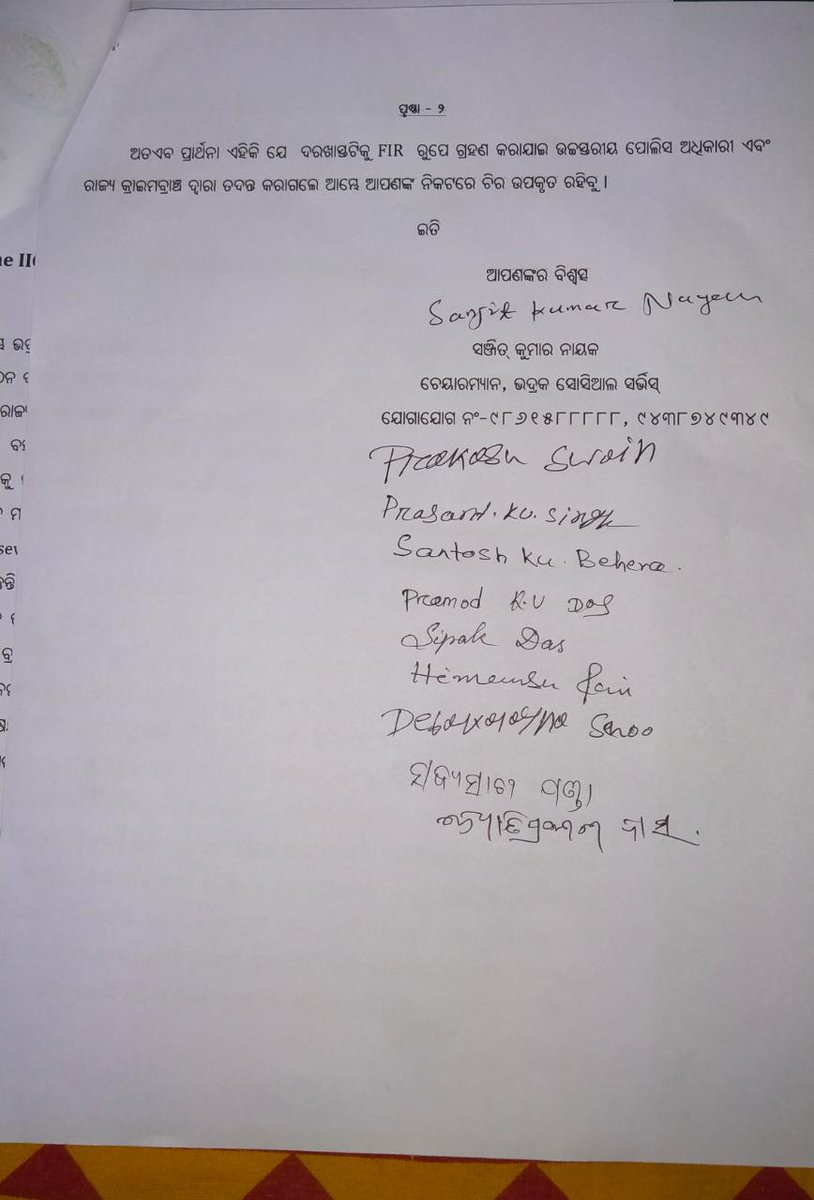 ପୃଷ୍ଠା - ୨
ଅତଏବ ପ୍ରାର୍ଥନା ଏହିକି ଯେ ଦରଖାସ୍ତଟିକୁ FIR ରୁପେ ଗ୍ରହଣ କରାଯାଇ ଉଚ୍ଚସ୍ତରୀୟ ପୋଲିସ ଅଧିକାରୀ ଏବଂ
ରାଜ୍ୟ କ୍ରାଇମବ୍ରାଞ୍ଚ ଦ୍ୱାରା ତଦନ୍ତ କରାଗଲେ ଆମ୍ଭେ ଆପଣଙ୍କ ନିକଟରେ ଚିର ଉପକୃତ ରହିବୁ ।
ଇତି
ଆପଣଙ୍କର ବିଶ୍ୱସ୍ତ
Sanjit Kumar Nayak
ସଞ୍ଜିତ୍ କୁମାର ନାୟକ
ଚେୟାରମ୍ୟାନ, ଭଦ୍ରକ ସୋସିଆଲ ସର୍ଭିସ୍
ଯୋଗାଯୋଗ ନଂ-୯୮୬୧୫୮୮୮୮୮, ୯୪୩୮୭୪୯୩୪୯
Prakash Swain
Prasant. Ku. Singh
Santosh Ku. Behera.
Pramod K.U Das
Dipak Das
Himansu
Debanarayana Sahoo
ସବ୍ୟସାଚୀ ପଣ୍ଡା
ଜ୍ୟୋତିପ୍ରକାଶ ଦାସ.